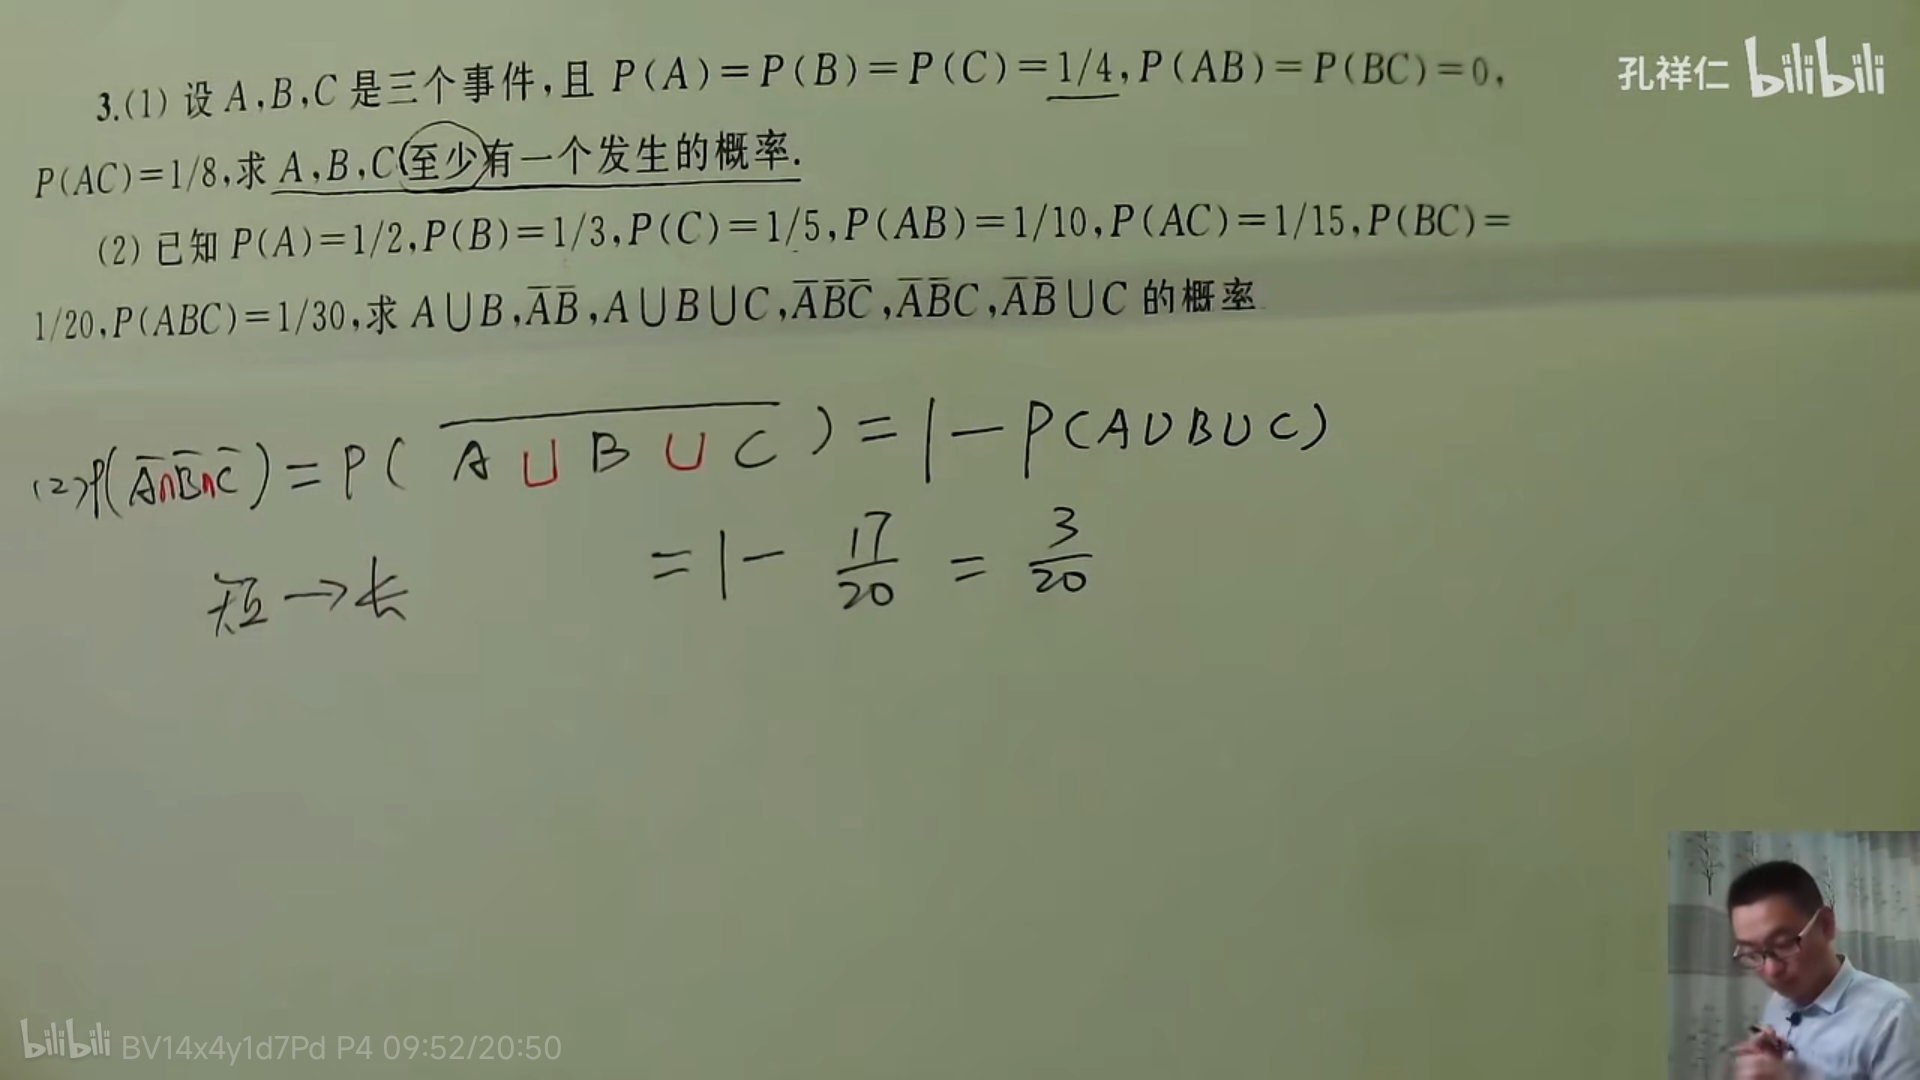 孔祥仁 bilibili
3.(1) 设 A,B,C 是三个事件,且 P(A)=P(B)=P(C)=1/4,P(AB)=P(BC)=0,
P(AC)=1/8,求 A,B,C 至少有一个发生的概率.
(2) 已知 P(A)=1/2,P(B)=1/3,P(C)=1/5,P(AB)=1/10,P(AC)=1/15,P(BC)=
1/20,P(ABC)=1/30,求 A∪B,A̅B̅,A∪B∪C,A̅B̅C̅,A̅B̅C,A̅B̅∪C 的概率
(2)P(A̅∩B̅∩C̅)=P(\overline{A∪B∪C})=1-P(A∪B∪C)
短→长 =1-17/20=3/20
bilibili BV14x4y1d7Pd P4 09:52/20:50